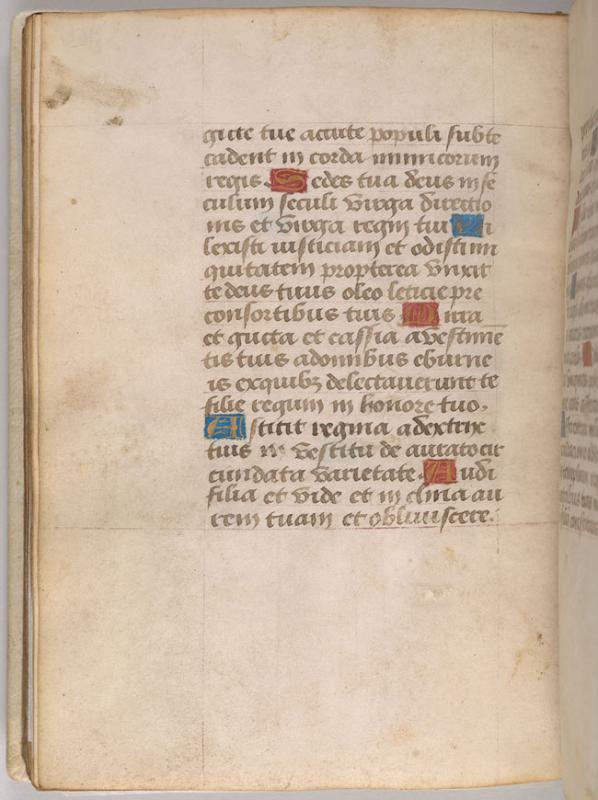 gitte tue accute populi subte
cadent in corda inimicorum
regis. Sedes tua deus in se
culum seculi virga directio
nis et virga regni tui Di
lexisti iusticiam et odisti ini
quitatem propterea vnxit
te deus tuus oleo leticie pre
consortibus tuis Mirra
et gucta et cassia a vestime
tis tuis a domibus eburne
is ex quibꝫ delectauerunt te
filie regum in honore tuo.
Astitit regina a dextris
tuis in vestitu de aurato cir
cundata varietate. Audi
filia et vide et inclina au
rem tuam et obliuiscere.